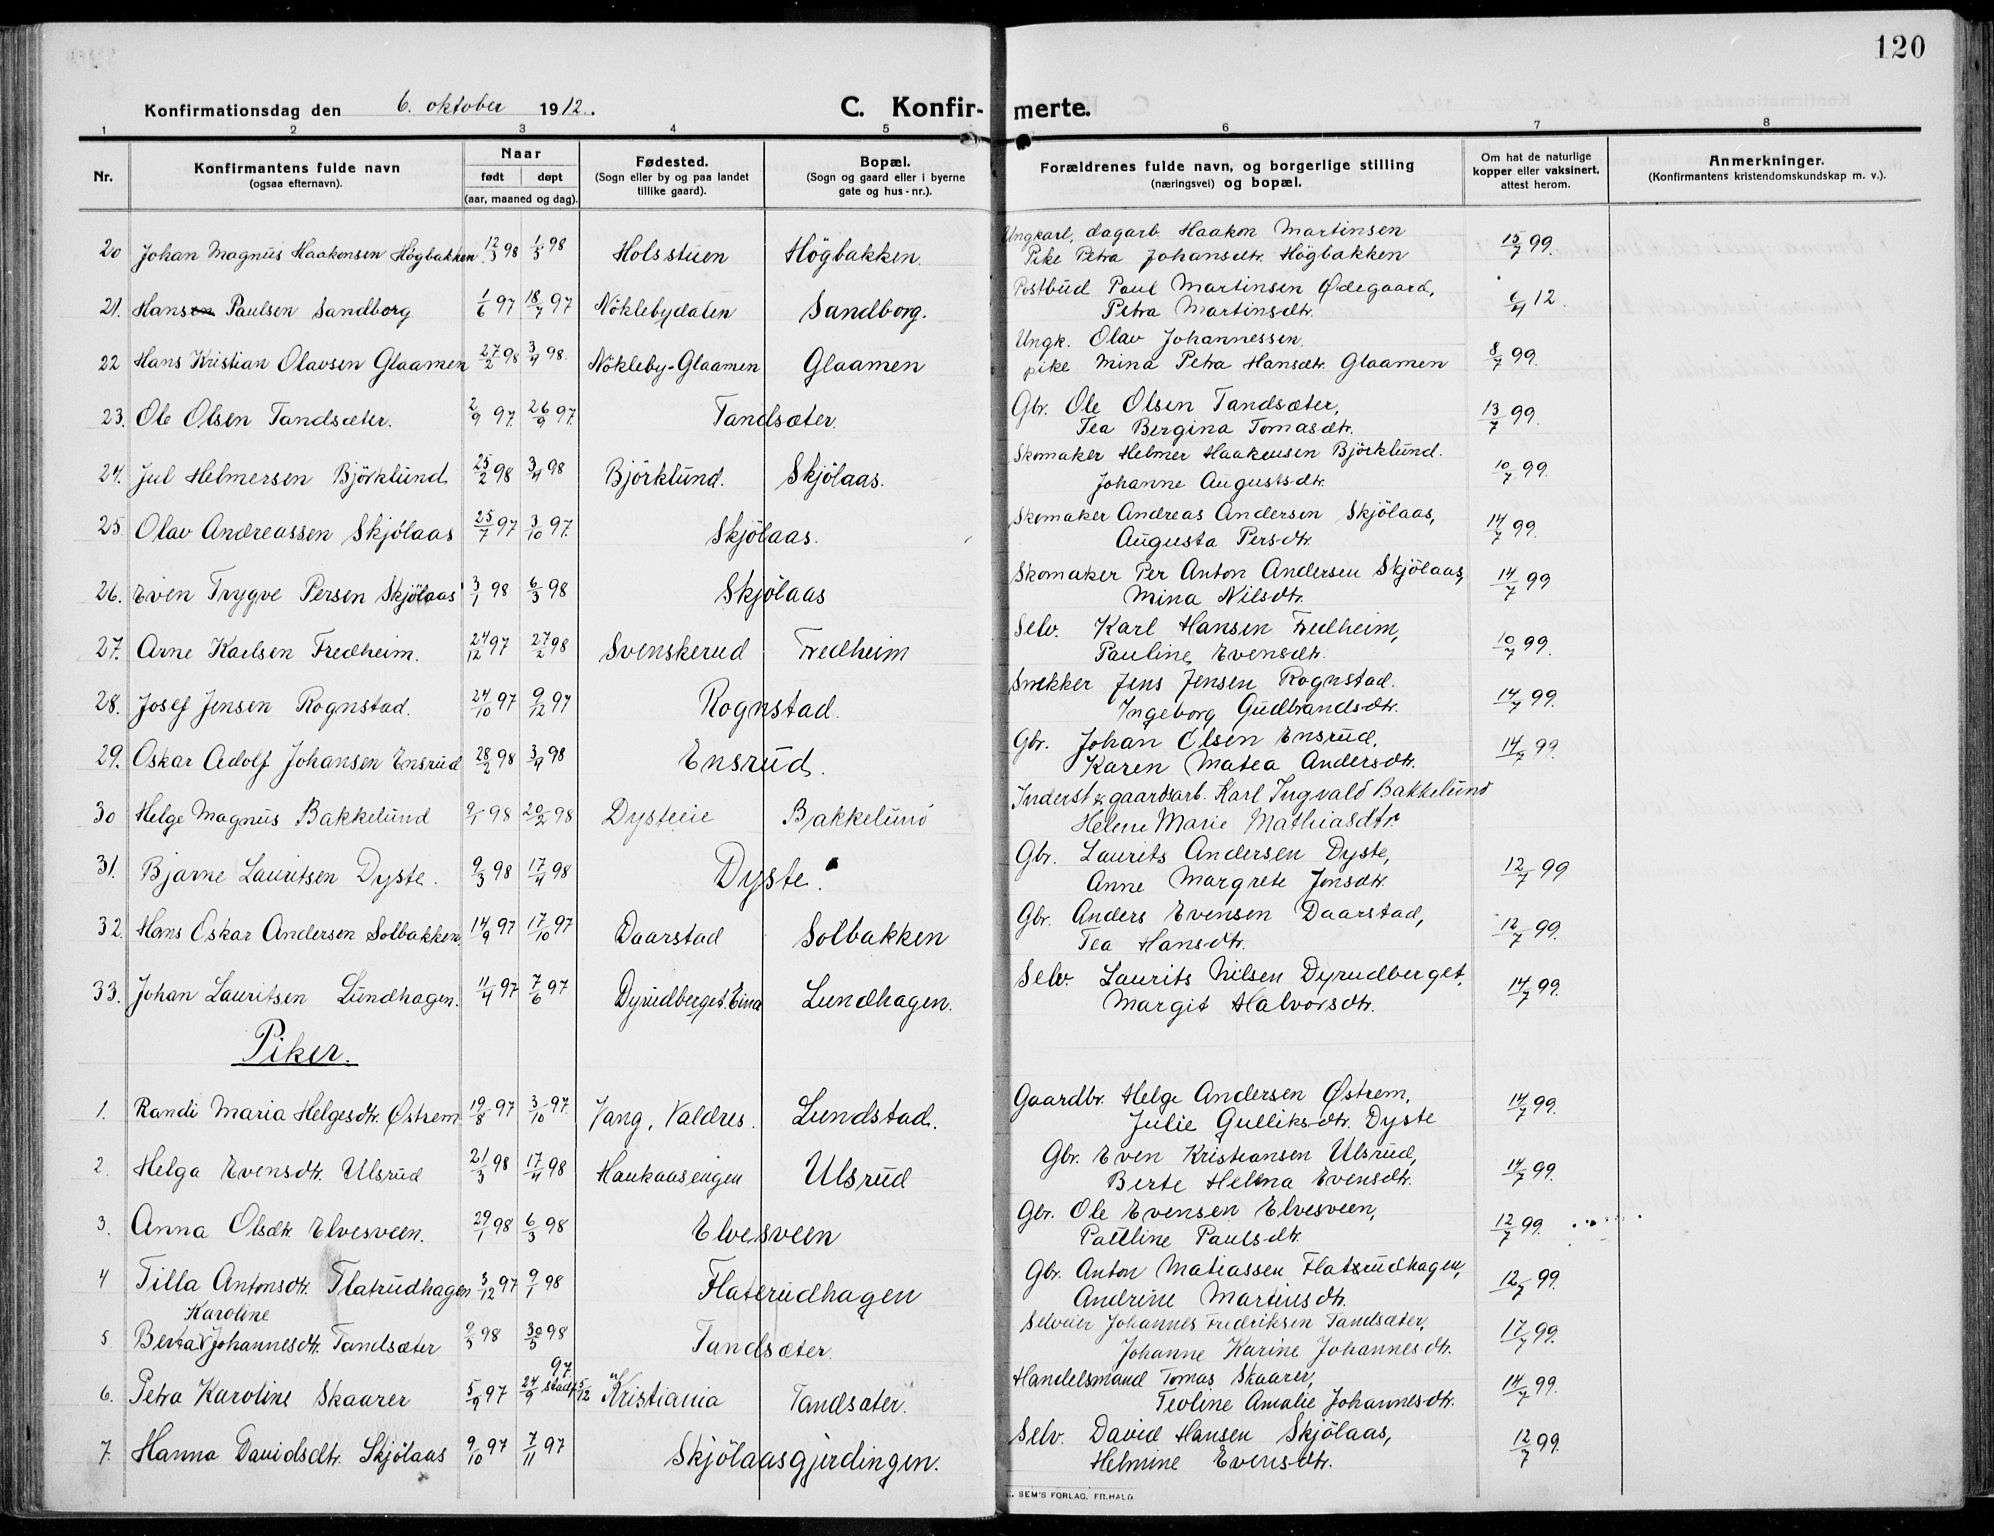 120
Konfirmationsdag den 6. oktober 1912. C. Konfir- merte.
1 2 3 4 5 6 7 8
Nr. Konfirmantens fulde navn (ogsaa efternavn). Naar født døpt (aar, maaned og dag). Fødested. (Sogn eller by og paa landet tillike gaard). Bopæl. (Sogn og gaard eller i byerne gate og hus-nr.). Forældrenes fulde navn, og borgerlige stilling (næringsvei) og bopæl. Om hat de naturlige kopper eller vaksinert, attest herom. Anmerkninger. (Konfirmantens kristendomskundskap m. v.).
20 Johan Magnus Haakensen Högbakken 12/3 98 1/5 98 Holsstuen Högbakken. Ungkarl, dagarb. Haakon Martinsen 15/7 99.
Pike Petra Johansdtr. Högbakken
21. Hans Paulsen Sandborg 1/6 97 18/7 97 Nöklebydalen Sandborg. Postbud Paul Martinsen Ødegaard, 6/4 12.
Petra Martinsdtr.
22 Hans Kristian Olavsen Glaamen 27/2 98 3/4 98. Nökleby-Glaamen Glaamen Ungk. Olav Johannessen. 8/7 99.
pike Mina Petra Hansdtr. Glaamen
23. Ole Olsen Tandsæter. 2/9 97. 26/9 97. Tandsæter. Gbr. Ole Olsen Tandsæter, 13/7 99.
Tea Bergina Tomasdtr.
24. Jul Helmersen Björklund 25/2 98 3/4 98 Björklund. Skjölaas. Skomaker Helmer Haakensen Björklund. 10/7 99.
Johanne Augustsdtr.
25 Olav Andreassen Skjölaas 25/7 97 3/10 97. Skjölaas. Skomaker Andreas Andersen Skjölaas, 14/7 99.
Augusta Persdtr.
26. Even Trygve Persen Skjölaas 3/1 98 6/3 98 Skjölaas Skomaker Per Anton Andersen Skjölaas, 14/7 99
Mina Nilsdtr.
27. Arne Karlsen Fredheim. 24/12 97 27/2 98 Svenskerud Fredheim Selv. Karl Hansen Fredheim, 10/7 99.
Pauline Evensdtr.
28. Josef Jensen Rognstad. 24/10 97 9/12 97 Rognstad. Snekker Jens Jensen Rognstad. 14/7 99.
Ingeborg Gudbrandsdtr.
29. Oskar Adolf Johansen Ensrud 28/2 98 3/4 98 Ensrud. Gbr. Johan Olsen Ensrud, 14/7 99.
Karen Matea Andersdtr.
30 Helge Magnus Bakkelund 9/1 98 20/2 98 Dysteeie Bakkelund Inderst & gaardsarb. Karl Ingvald Bakkelund
Helene Marie Mathiasdtr.
31. Bjarne Lauritsen Dyste. 9/3 98 17/4 98 Dyste. Gbr. Laurits Andersen Dyste, 12/7 99
Anne Margrete Jonsdtr.
32. Hans Oskar Andersen Solbakken 14/9 97 17/10 97 Daarstad Solbakken Gbr. Anders Evensen Daarstad, 12/7 99.
Tea Hansdtr.
33. Johan Lauritsen Lundhagen. 11/4 97 7/6 97 Dyrudberget. Eina Lundhagen. Selv. Laurits Nilsen Dyrudberget, 14/7 99.
Margit Halvorsdtr.
Piker.
1. Randi Maria Helgesdtr. Østrem 19/8 97 3/10 97. Vang, Valdres. Lundstad. Gaardbr. Helge Andersen Østrem, 14/7 99.
Julie Gulliksdtr. Dyste
2. Helga Evensdtr. Ulsrud 21/3 98 17/4 98 Haukaasengen Ulsrud Gbr. Even Kristiansen Ulsrud, 14/7 99.
Berte Helena Evensdtr.
3. Anna Olsdtr. Elvesveen. 29/1 98 6/3 98 Elvesveen Gbr. Ole Evensen Elvesveen, 12/7 99.
Pauline Paulsdtr.
4 Tilla Antonsdtr. Flatrudhagen 3/12 97 9/1 98 Flaterudhagen Gbr. Anton Matiassen Flaterudhagen, 12/7 99.
Andrine Martinsdtr.
Karoline
5 Berta Johannesdtr. Tandsæter 9/5 98 30/5 98 Tandsæter. Selveier Johannes Fredriksen Tandsæter, 17/7 99.
Johanne Karine Johannesdtr.
6. Petra Karoline Skaarer 5/9 97 24/9 97 stadf. 5/12 Kristiania Tandsæter. Handelsmand Tomas Skaarer, 14/7 99.
Teoline Amalie Johannesdtr.
7. Hanna Davidsdtr. Skjölaas 9/10 97 7/11 97 Skjölaasgjerdingen. Selv. David Hansen Skjölaas, 12/7 99.
Helmine Evensdtr.
SEM'S FORLAG, FR.HALD